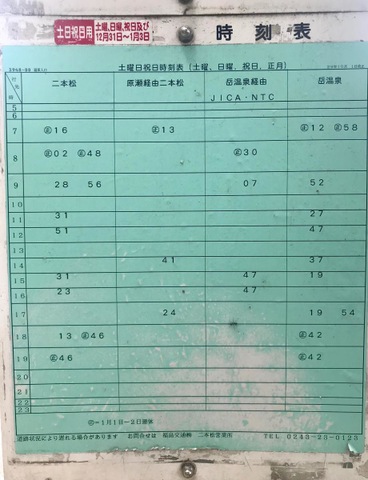 土日祝日用 土曜、日曜、祝日及び 12月31日〜1月3日
時刻表
土曜日祝日時刻表（土曜、日曜、祝日、正月）
二本松 原瀬経由二本松 岳温泉経由 JICA・NTC 岳温泉
5
6
7 ㊣16 ㊣13 ㊣12 ㊣58
8 ㊣02 ㊣48 ㊣30
9 28 56 07 52
10
11 31 27
12 51 47
13
14 41 37
15 31 47 19
16 23 47
17 24 19 54
18 13 ㊣46 ㊣42
19 ㊣46 ㊣42
20
21
22
23
㊣＝1月1日〜2日運休
道路状況により遅れる場合があります お問合せは 福島交通㈱ 二本松営業所 TEL 0243-23-0123